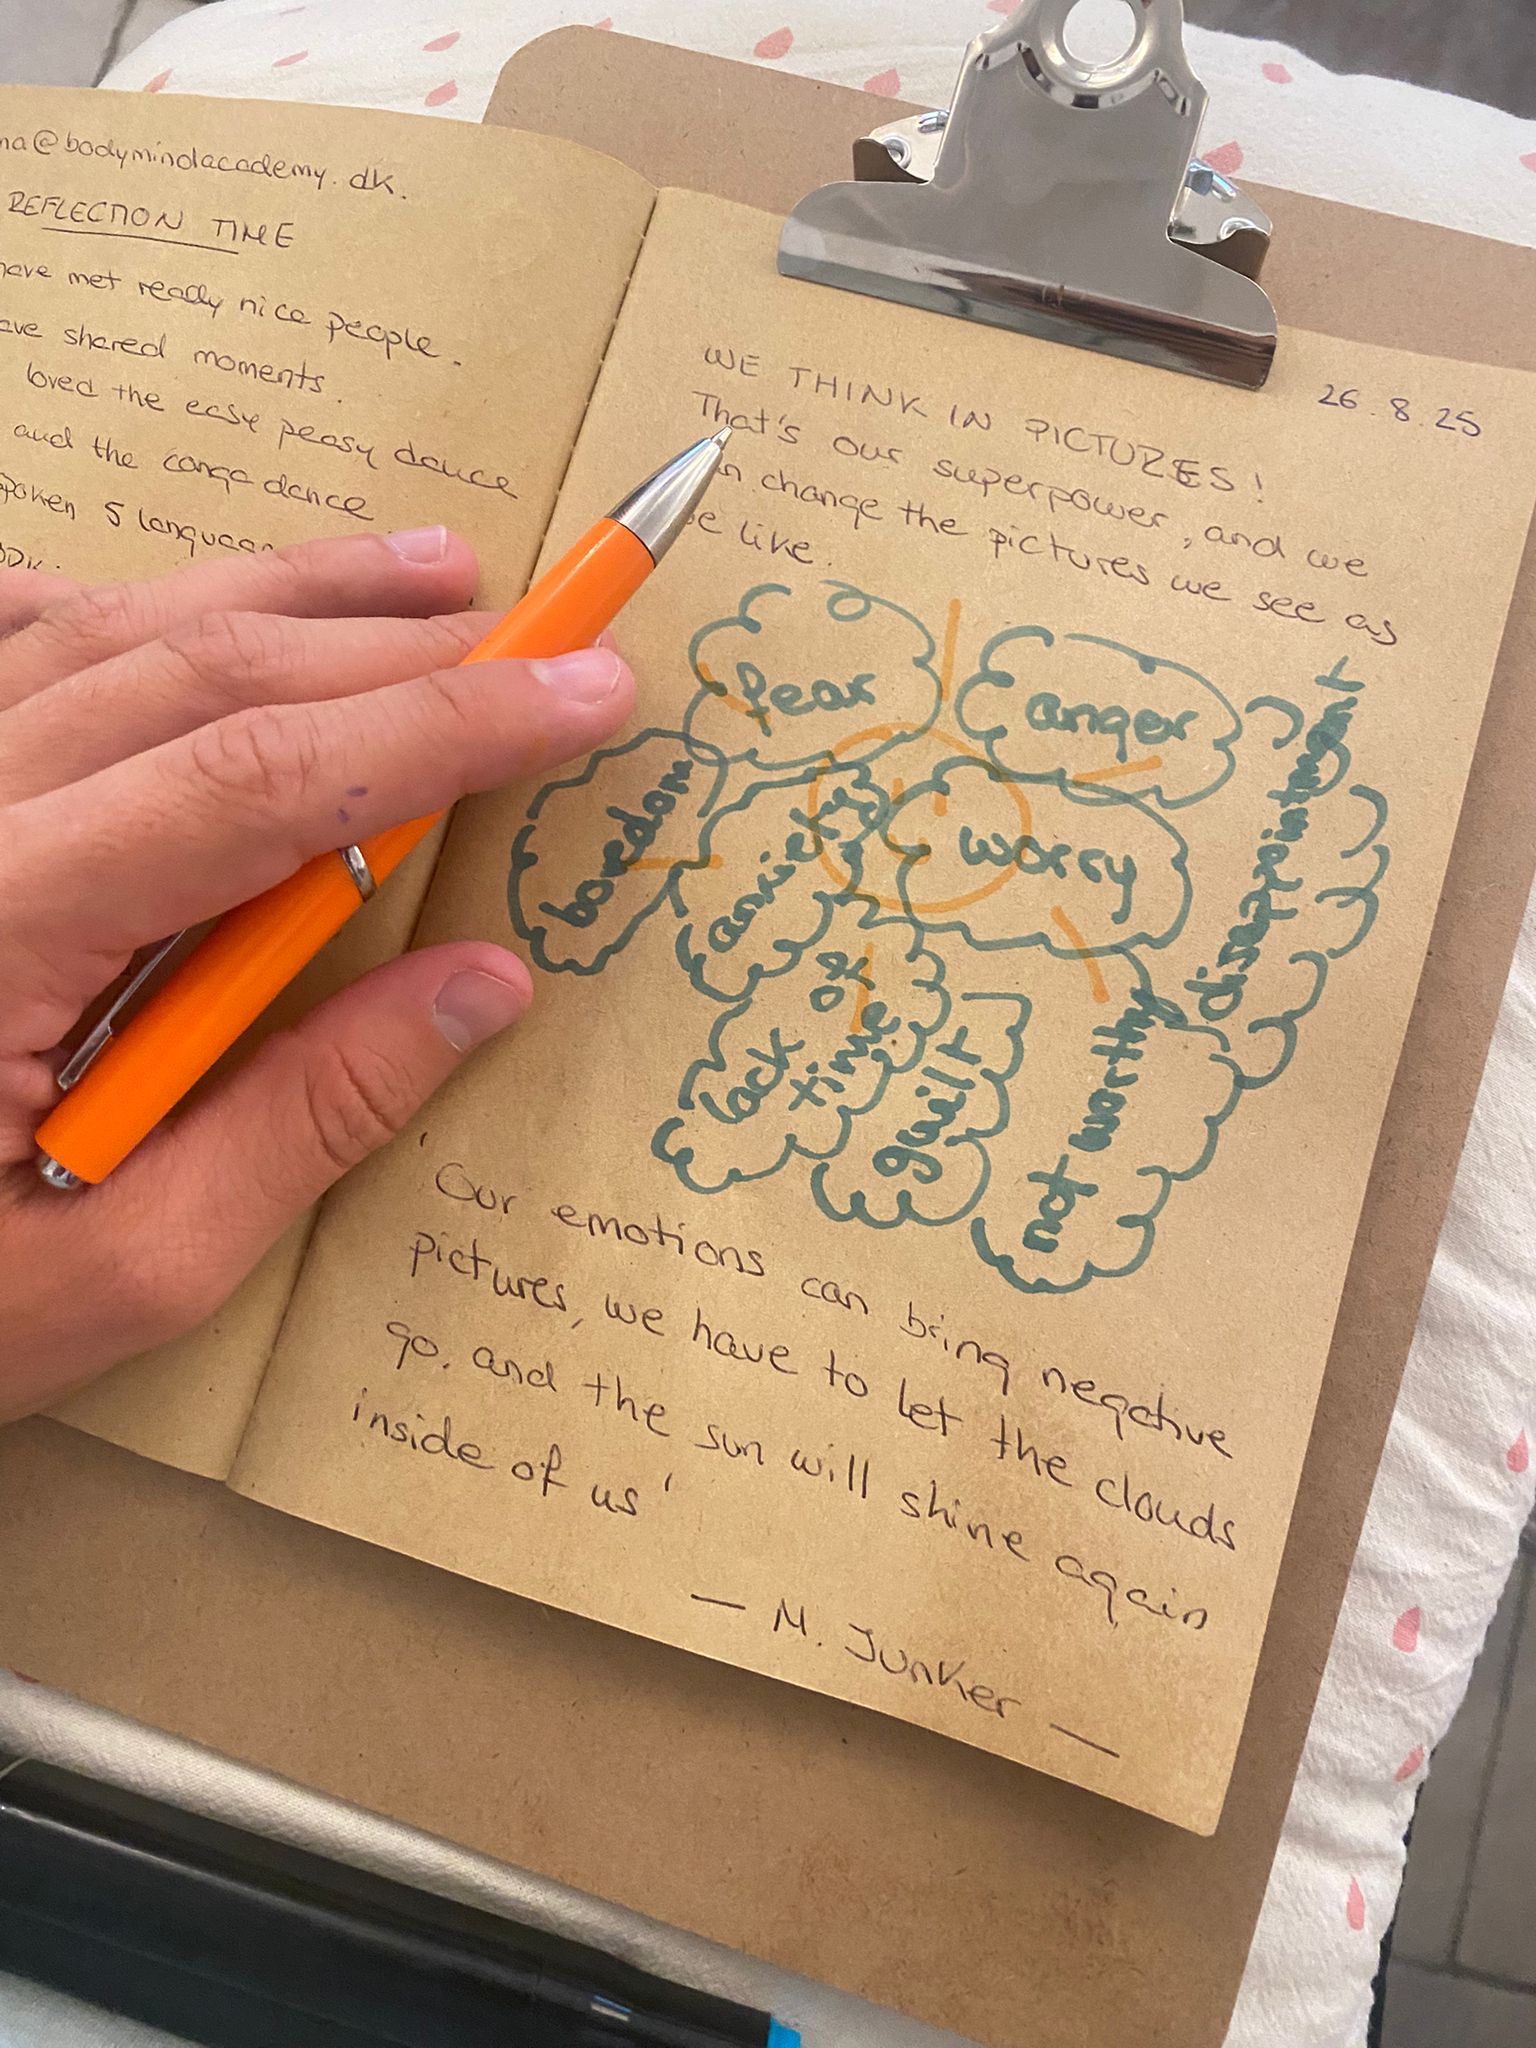 na@bodymindacademy.dk.
REFLECTION TIME
have met really nice people.
ave shared moments.
loved the easy peasy dance
and the conga dance.
spoken 5
WE THINK IN PICTURES!
26.8.25
That's our superpower, and we
change the pictures we see as
like.
fear
anger
boredom
anxiety
worry
disappointment
lack of
time
guilt
not worthy
'Our emotions can bring negative
pictures, we have to let the clouds
go, and the sun will shine again
inside of us'
— M. Junker —